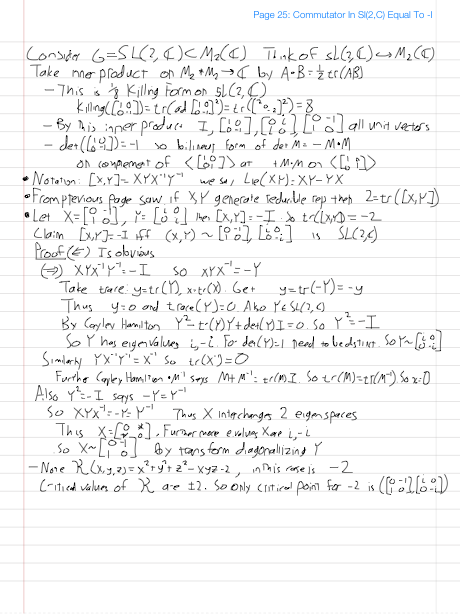 Page 25: Commutator In Sl(2,C) Equal To -I
Consider G=SL(2,ℂ)<M₂(ℂ) Think of sl(2,ℂ)↪M₂(ℂ)
Take inner product on M₂*M₂→ℂ by A•B=½tr(AB)
- This is ⅛ Killing Form on sl(2,ℂ)
Killing([1 0; 0 -1])=tr(ad[1 0; 0 -1]²)=tr([2 0 -2]²)=8
- By this inner product I, [1 0; 0 -1], [0 i; i 0], [0 -1; 1 0] all unit vectors
- det([1 0; 0 -1])=-1 so bilinear form of det M=-M•M
on complement of <[1 0; 0 1]> at +M•M on <[1 0; 0 1]>
• Notation: [X,Y]=XYX⁻¹Y⁻¹ we say Lie(XY)=XY-YX
• From previous page saw if X,Y generate reducible rep then 2=tr([X,Y])
• Let X=[0 -1; 1 0], Y=[i 0; 0 -i] then [X,Y]=-I. So tr([X,Y])=-2
Claim [X,Y]=-I iff (X,Y)~[0 -1; 1 0],[i 0; 0 -i] is SL(2,ℂ)
Proof (⇐) Is obvious
(⇒) XYX⁻¹Y⁻¹=-I so XYX⁻¹=-Y
Take trace: y=tr(Y), x=tr(X). Get y=tr(-Y)=-y
Thus y=0 and trace(Y)=0. Also Y∈SL(2,ℂ)
By Cayley Hamilton Y²-tr(Y)Y+det(Y)I=0. So Y²=-I
So Y has eigenvalues i,-i. For det(Y)=1 need to be distinct. So Y~[i 0; 0 -i]
Similarly YX⁻¹Y⁻¹=X⁻¹ so tr(X)=0
Further Cayley Hamilton •M⁻¹ says M+M⁻¹=tr(M)I. So tr(M)=tr(M⁻¹) So x=0
Also Y²=-I says -Y=Y⁻¹
So XYX⁻¹=-Y=Y⁻¹ Thus X interchanges 2 eigenspaces
Thus X=[0 *; * 0]. Furthermore evalues X are i,-i
So X~[0 -1; 1 0] by transform diagonalizing Y
- Note K(x,y,z)=x²+y²+z²-xyz-2, in this case is -2
Critical values of K are ±2. So only critical point for -2 is ([0 -1; 1 0],[i 0; 0 -i])